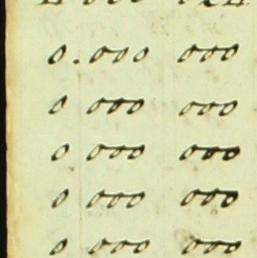 0.000 000
0 000 000
0 000 000
0 000 000
0 000 000